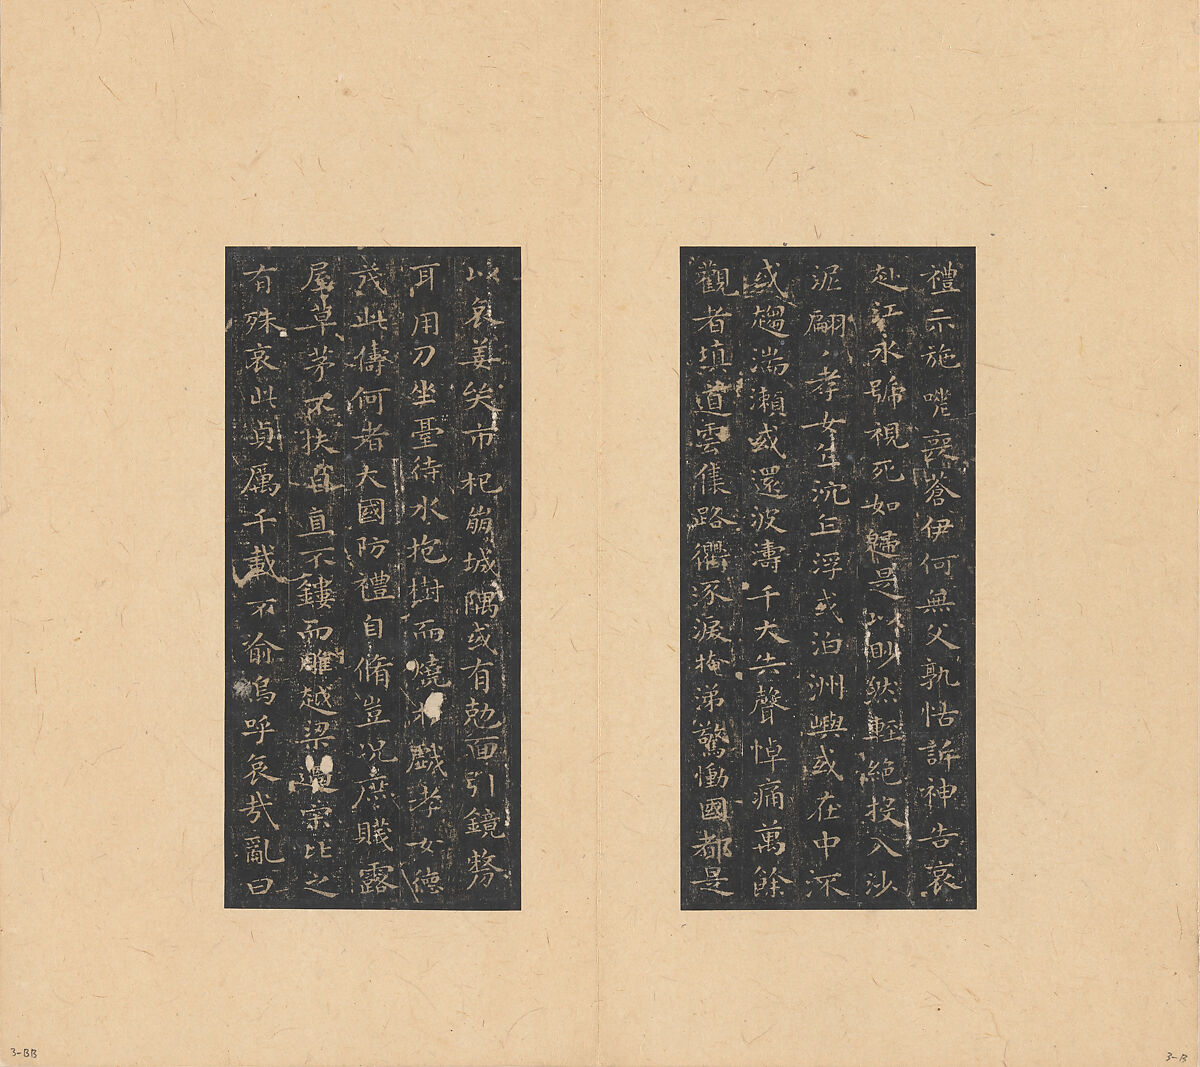 禮示施嗟喪蒼伊何無父孰怙訴神告哀
赴江永號視死如歸是以眇然輕絕投入沙
泥翩〻孝女乍沉乍浮或泊洲嶼或在中流
或趨湍瀨或還波濤千夫失聲悼痛萬餘
觀者填道雲集路衢流淚掩涕驚慟國都是
以哀姜哭市杞崩城隅或有剋面引鏡剺
耳用刀坐臺待水抱樹而燒於戲孝女德
茂此儔何者大國防禮自脩豈況庶賤露
屋草茅不扶自直不鏤而雕越梁過宋比之
有殊哀此貞厲千載不渝嗚呼哀哉亂曰
3-BB
3-B